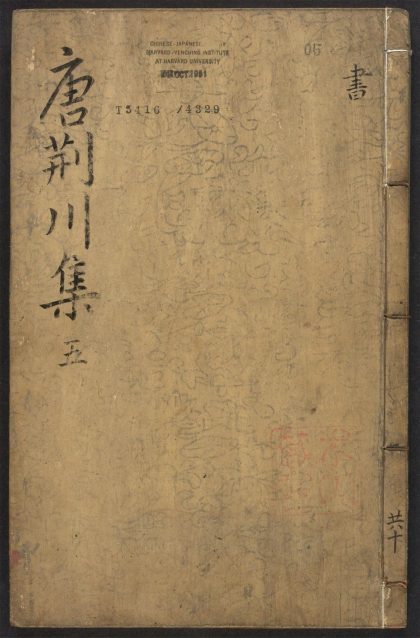 唐荊川集
五
CHINESE-JAPANESE
HARVARD-YENCHING INSTITUTE
AT HARVARD UNIVERSITY
OCT 1951
T5416 /4329
書
共十